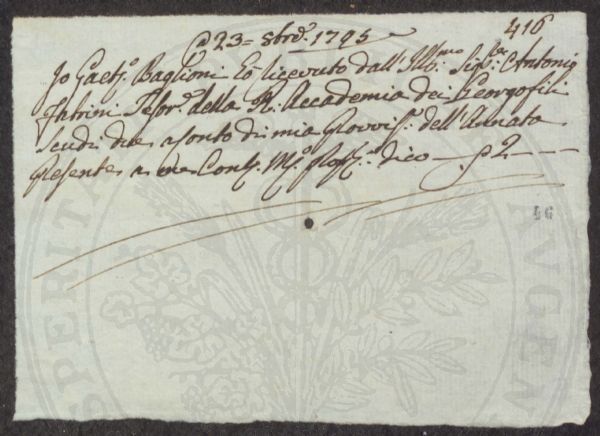 416
23 = 1795
Io Gaet.º Baglioni Hò ricevuto dall' Ill.mo Sig.re Antonio
Fabrini Tesor.e della R. Accademia dei Georgofili
Scudi due a conto di mia Provvis.e dell' Annata
Presente a me Cont. M.º Prop.ª dico 2 —
46
PROSPERITA AUGEN